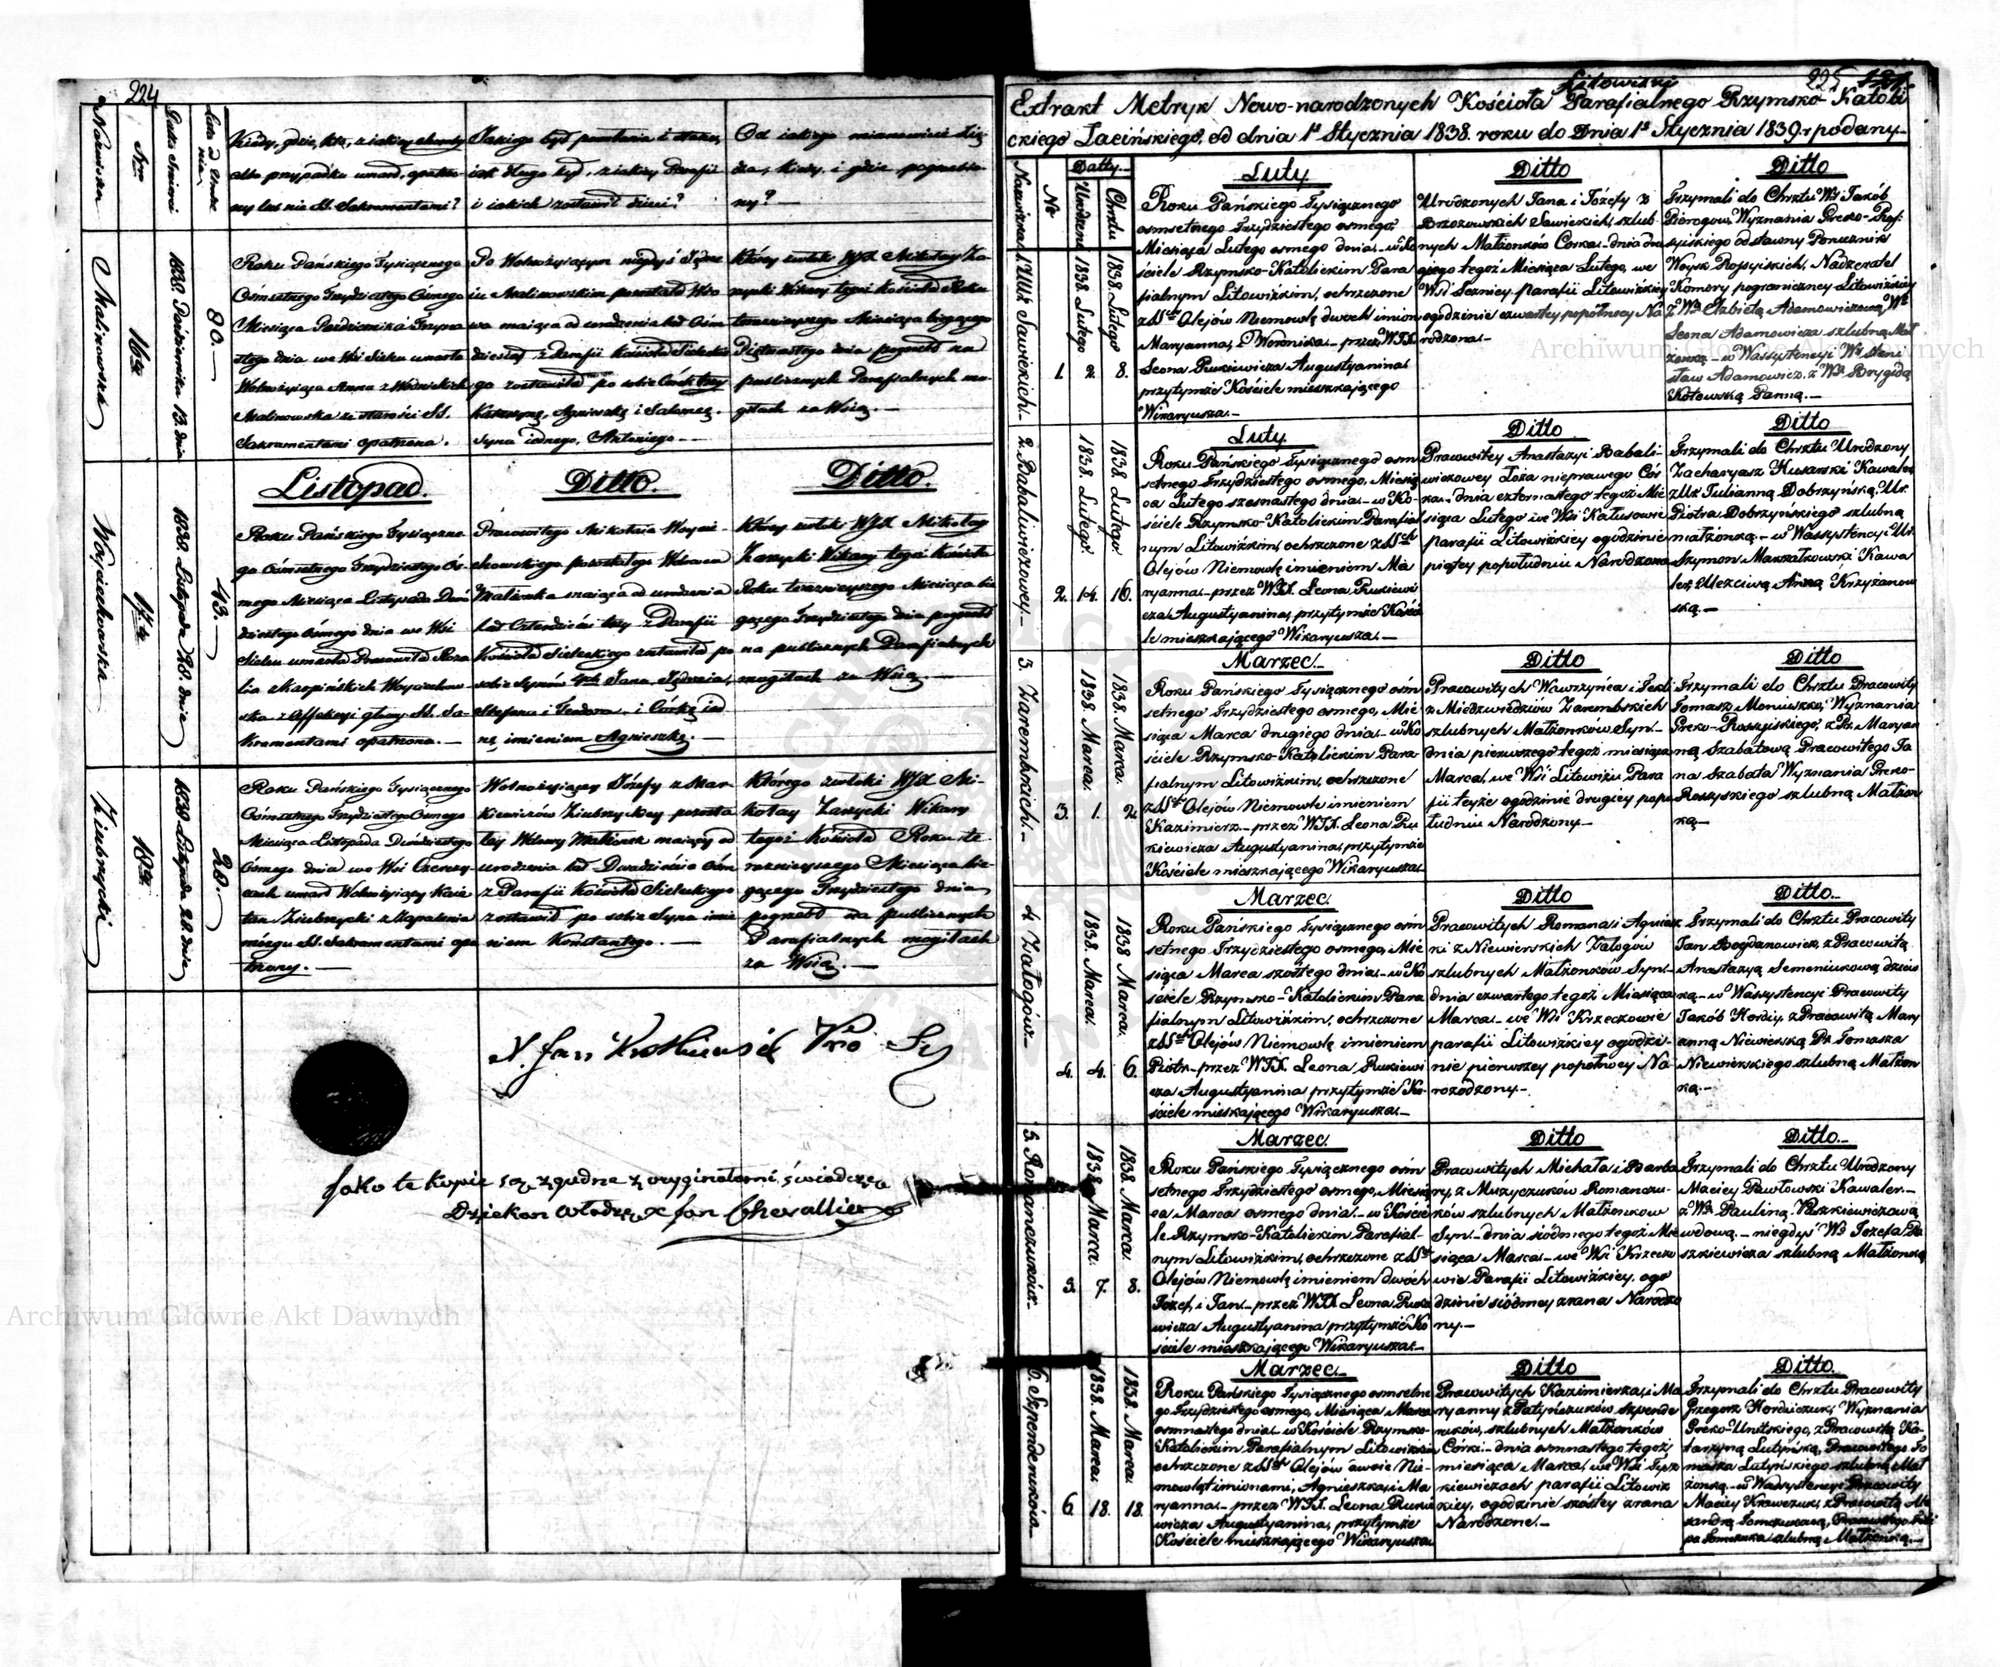 224
Nazwiska
Nro
Data śmierci
Lata od Urodzenia
Kiedy, gdzie, kto, z jakiey choroby
albo przypadku umarł, opatrzony
lub nie SS. Sakramentami?
Jakiego był powołania i stanu,
jak długo żył, z jakiey Parafii
i jakich zostawił dzieci?
Od jakiego mianowicie Xię-
dza, kiedy, i gdzie pogrzebio-
ny?
Malinowska
16ta
1838 Października 13. dnia
80.
Roku Pańskiego Tysiącznego
Ósmsetnego Trzydziestego Ósmego
Miesiąca Października Trzyna-
stego dnia we Wsi Sielcu umarła
Wolnożyjąca Anna z
Malinowska ze starości SS.
Sakramentami opatrzona.
Po Wolnożyjącym niegdyś Jędrze-
iu Malinowskim pozostała Wdo-
wa maiąca od urodzenia lat Ośm-
dziesiąt z Parafii Kościoła Sieleckie-
go zostawiła po sobie Córek trzy
Katarzynę, Agnieszkę i Salomeę.
Syna iednego, Antoniego
Którey zwłoki WJX. Mikołay Za-
rzycki Wikary tegoż Kościoła Roku
teraznieyszego Miesiąca bieżącego
Piętnastego dnia pogrzebł na
publicznych Parafialnych mo-
giłach za Wsią.
Listopad.
Ditto.
Ditto.
Woyciechowska
17ta
1838. Listopada 28. dnia
43.
Roku Pańskiego Tysiączne-
go Ósmsetnego Trzydziestego Ós-
mego Miesiąca Listopada Dwó-
dziestego Ósmego dnia we Wsi
Sielcu umarła Pracowita Roza-
lia z Karpińskich Woyciechow-
ska z Affekcyi głowy SS. Sa-
kramentami opatrzona.
Pracowitego Mikołaia Woycie-
chowskiego pozostałego Wdowca
Małżonka maiąca od urodzenia
Lat Czterdzieści trzy z Parafii
Kościoła Sieleckiego zostawiła po
sobie Synów 4ch Jana, Jędrzeia,
Stefana i Teodora, i Córkę ied-
nę imieniem Agnieszkę.
Którey zwłoki WJX. Mikołay
Zarzycki Wikary tegoż Kościoła
Roku teraznieyszego Miesiąca bie-
żącego Trzydziestego dnia pogrzebł
na publicznych Parafialnych
mogiłach za Wsią.
Ziubrzycki
18ty
1838 Listopada 28. dnia
28.
Roku Pańskiego Tysiącznego
Ósmsetnego Trzydziestego Ósmego
Miesiąca Listopada Dwódziestego
Ósmego dnia we Wsi
umarł Wolnożyjący Kaie-
tan Ziubrzycki z Zapalenia
mózgu SS. Sakramentami opa-
trzony.
Wolnożyjącey Józefy z Mar-
kiewiczów Ziubrzyckiey pozosta-
łey Wdowy Małżonek maiący od
urodzenia lat Dwadzieścia ośm
z Parafii Kościoła Sieleckiego
zostawił po sobie Syna imie-
niem Konstantego.
Którego zwłoki WJX. Mi-
kołay Zarzycki Wikary
tegoż Kościoła Roku te-
raznieyszego Miesiąca bie-
żącego Trzydziestego dnia
pogrzebł na publicznych
Parafialnych mogiłach
za Wsią.
X. Jan
Jako te kopie są zgodne z oryginałami, świadczę
Dziekan Włodz. X Jan Chevallier
Litowiski
225
Extrakt Metryk Nowo-narodzonych Kościoła Parafialnego Rzymsko-Katoli
ckiego Łacińskiego, od dnia 1o Stycznia 1838. roku do Dnia 1o Stycznia 1839. r podany
Nazwiska
No
Datty
Urodzenia
Chrztu
Luty
Ditto
Ditto
1. UUr Sawickich.
1.
1838. Lutego 2.
1838. Lutego 8.
Roku Pańskiego Tysiącznego
osmsetnego Trzydziestego osmego,
Miesiąca Lutego osmego dnia - w Ko
ściele Rzymsko-Katolickim Para
fialnym Litowizkim, ochrzczone
z SSch Olejów Niemowlę dwoch imion
Maryanna, i Weronika - przez WJX.
Leona Rukiewicza Augustyanina
przytymże Kościele mieszkaiącego
Wikaryusza.
Urodzonych Jana i Józefy z
Brzozowskich Sawickich, szlub
nych Małżonków Corka - dnia dru
giego tegoż Miesiąca Lutego, we
Wsi parafii Litowizkiey
ogodzinie czwartey popołnocy Na
rodzona.
Trzymali do Chrztu Wy Jakób
Piorogow, Wyznania Greko-Ros
syiskiego odstawny Porucznik
Woysk Rossyiskich, Nadzeratel
Komory pograniczney Litowizkiey
z Wą Elżbietą Adamowiczową Wo
Leona Adamowicza szlubną Mał
żonką - w Wassystencyi Wo Stani
sław Adamowicz, z Wą Brygidą
Kotowską Panną.
Luty.
Ditto.
Ditto
2. Babaliwiczowey.
2.
1838. Lutego 14.
1838. Lutego 16.
Roku Pańskiego Tysiącznego osm
setnego Trzydziestego osmego, Miesią
ca Lutego szesnastego dnia - w Ko
ściele Rzymsko-Katolickim Parafial
nym Litowizkim, ochrzczone z SSch
Olejów Niemowlę imieniem Ma
ryanna - przez WJX. Leona Rukiewi
cza Augustyanina, przytymże Kości
le mieszkaiącego Wikaryusza.
Pracowitey Anastazyi Babali-
wiczowey Łoża nieprawego Cór
ka - dnia czternastego tegoż Mie
siąca Lutego we Wsi Kałusowie
parafii Litowizkiey ogodzinie
piątey popołudniu Narodzona
Trzymali do Chrztu Urodzony
Zacharyasz Husarski Kawaler
z Ur Julianną Dobrzyńską, Ur.
Piotra Dobrzyńskiego szlubną
małżonką - w Wassystencyi Ur.
Szymon Marszałkowski Kawa
ler, z Uczciwą Anną Krzyżanow
ską.
Marzec.
Ditto
Ditto
3. Zarembskich.
3.
1838. Marca. 1.
1838. Marca. 2.
Roku Pańskiego Tysiącznego osm
setnego Trzydziestego osmego, Mie
siąca Marca drugiego dnia - w Ko
ściele Rzymsko-Katolickim Para
fialnym Litowizkim, ochrzczone
z SSch Olejów Niemowle imieniem
Kazimierz - przez WJX. Leona Ru
kiewicza Augustyanina, przytymże
Kościele mieszkaiącego Wikaryusza.
Pracowitych Wawrzyńca i Tekli
z Miedzwiedziów Zarembskich
szlubnych Małżonków Syn -
dnia pierwszego tegoż miesiąca
Marca, we Wsi Litowizu Para
fii teyże ogodzinie drugiey popo
łudniu Narodzony.
Trzymali do Chrztu Pracowity
Tomasz Moniuszko, Wyznania
Greko-Rossyiskiego, z Pr. Maryan
ną Szabatową Pracowitego Ja
na Szabata Wyznania Greko-
Rossyskiego szlubną Małżon
ką.
Marzec.
Ditto
Ditto.
4. Załogów.
4.
1838. Marca. 4.
1838 Marca. 6.
Roku Pańskiego Tysiącznego osm
setnego Trzydziestego osmego, Mie
siąca Marca szóstego dnia - w Ko
ściele Rzymsko-Katolickim Para
fialnym Litowizkim, ochrzczone
z SSch Olejów Niemowlę imieniem
Piotr - przez WJX. Leona Rukiewi
cza Augustyanina przytymże Ko
ściele mieszkaiącego Wikaryusza.
Pracowitych Romana i Agniesz
ki z Niewierskich Załogów
szlubnych Małżonków Syn -
dnia czwartego tegoż Miesiąca
Marca - we Wsi Krzeczowie
parafii Litowizkiey ogodzi-
nie pierwszey popołnocy Na-
rodzony.
Trzymali do Chrztu Pracowity
Jan Bogdanowicz, z Pracowitą
Anastazyą Semeniukową
- w Wassystencyi Pracowity
Jakób Hordiy, z Pracowitą Mary
anną Niewierską Pr. Tomasza
Niewierskiego szlubną Małżon
ką.
Marzec.
Ditto
Ditto.
5. Romanczuków.
5.
1838. Marca. 7.
1838. Marca. 8.
Roku Pańskiego Tysiącznego osm
setnego Trzydziestego osmego, Miesią
ca Marca osmego dnia - w Koście
le Rzymsko-Katolickim Parafial-
nym Litowizkim, ochrzczone z SSch
Olejów Niemowlę imieniem dwóch
Józef, i Jan - przez WJX. Leona Ruk
iewicza Augustyanina przytymże Ko
ściele mieszkaiącego Wikaryusza.
Pracowitych Michała i Barba
ry, z Muzyczuków Romanczu-
ków szlubnych Małżonkow
Syn - dnia siódmego tegoż Mie
siąca Marca - we Wsi Krzeczo
wie Parafii Litowizkiey, ogo
dzinie siódmey zrana Narodzo
ny.
Trzymali do Chrztu Urodzony
Maciey Pawłowski Kawaler -
z Wą Pauliną Paszkiewiczową
wdową - niegdyś Wo Jozefa Pa
szkiewicza szlubną Małżonką
Marzec.
Ditto
Ditto.
6. Szpenderuków.
6
1838. Marca. 18.
1838. Marca. 18.
Roku Pańskiego Tysiącznego osmsetne
go Trzydziestego osmego, Miesiąca Marca
osmnastego dnia - w Kościele Rzymsko-
Katolickim Parafialnym Litowizkim
ochrzczone z SSch Olejów dwoie Nie-
mowląt imionami, Agnieszka, i Ma
ryanna - przez WJX. Leona Ruki
ewicza Augustyanina, przytymże
Kościele mieszkaiącego Wikaryusza
Pracowitych Kazimierza, i Ma
ryanny z Patyńczuków Szpende
ruków, szlubnych Małżonków
Córki - dnia osmnastego tegoż
miesiąca Marca, we Wsi
parafii Litowiz
kiey, ogodzinie szóstey zrana
Narodzone.
Trzymali do Chrztu Pracowity
Grzegorz Hordiiczuk, Wyznania
Greko-Unitskiego, z Pracowitą Ka-
tarzyną Lutyńską, Pracowitego To
masza Lutyńskiego szlubną Mał
żonką - w Wassystencyi Pracowity
Maciey Krawczuk, z Pracowitą
Tomczukową, Pracowitego
Tomczuka szlubną Małżonką.
Archiwum Główne Akt Dawnych
Archiwum Główne Akt Dawnych